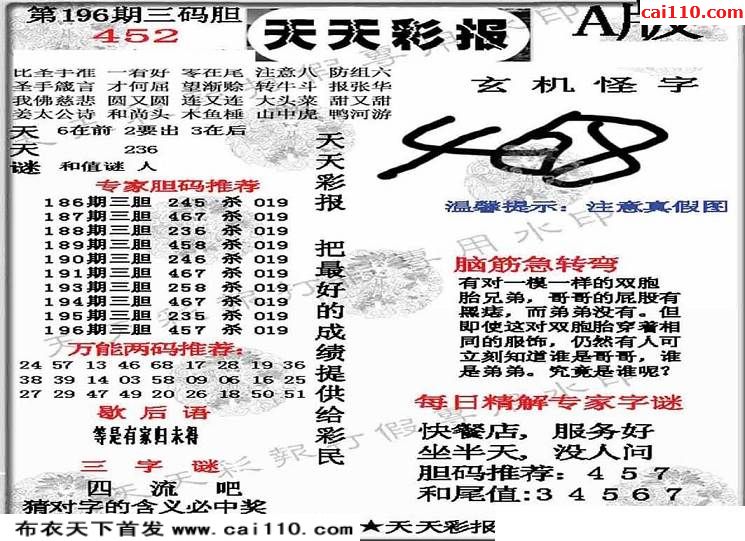 第196期三码胆
452
天天彩报
A版
cai110.com
比圣手准 一看好 零在尾 注意八 防组六
圣手箴言 才何屈 望渐赊 转牛斗 报张华
我佛慈悲 圆又圆 连又连 大头菜 甜又甜
姜太公诗 和尚头 木鱼棰 山中虎 鸭河游
天 6在前 2要出 3在后
天 236
谜 和值谜 人
专家胆码推荐
186期三胆 245 杀 019
187期三胆 467 杀 019
188期三胆 236 杀 019
189期三胆 458 杀 019
190期三胆 246 杀 019
191期三胆 467 杀 019
193期三胆 258 杀 019
194期三胆 467 杀 019
195期三胆 235 杀 019
196期三胆 457 杀 019
万能两码推荐:
24 57 13 46 68 17 28 19 36
38 39 14 03 58 09 06 16 25
27 29 47 49 20 26 18 50 51
歇后语
等是有家归未得
三字谜
四流吧
猜对字的含义必中奖
天天彩报 把最好的成绩提供给彩民
玄机怪字
468
温馨提示: 注意真假图
脑筋急转弯
有对一模一样的双胞
胎兄弟，哥哥的屁股有
黑痣，而弟弟没有。但
即使这对双胞胎穿着相
同的服饰，仍然有人可
立刻知道谁是哥哥，谁
是弟弟。究竟是谁呢?
每日精解专家字谜
快餐店，服务好
坐半天，没人问
胆码推荐: 457
和尾值:34567
布衣天下首发 www.cai110.com ★天天彩报